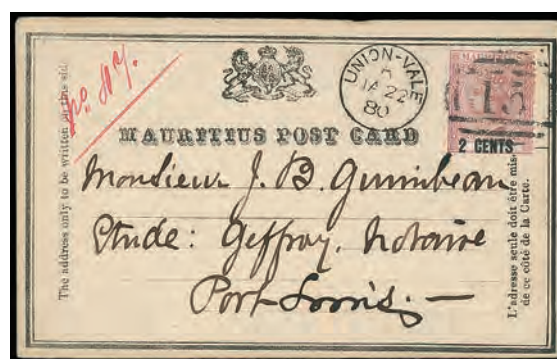 The address only to be written on this side.
No.
UNION-VALE
A
JA 22
80
MAURITIUS
MAURITIUS POST CARD
2 CENTS
Monsieur J. B. Guimbeau
Etude: Geffroy. Notaire
Port-Louis. —
L'adresse seule doit être mise
de ce côté de la Carte.